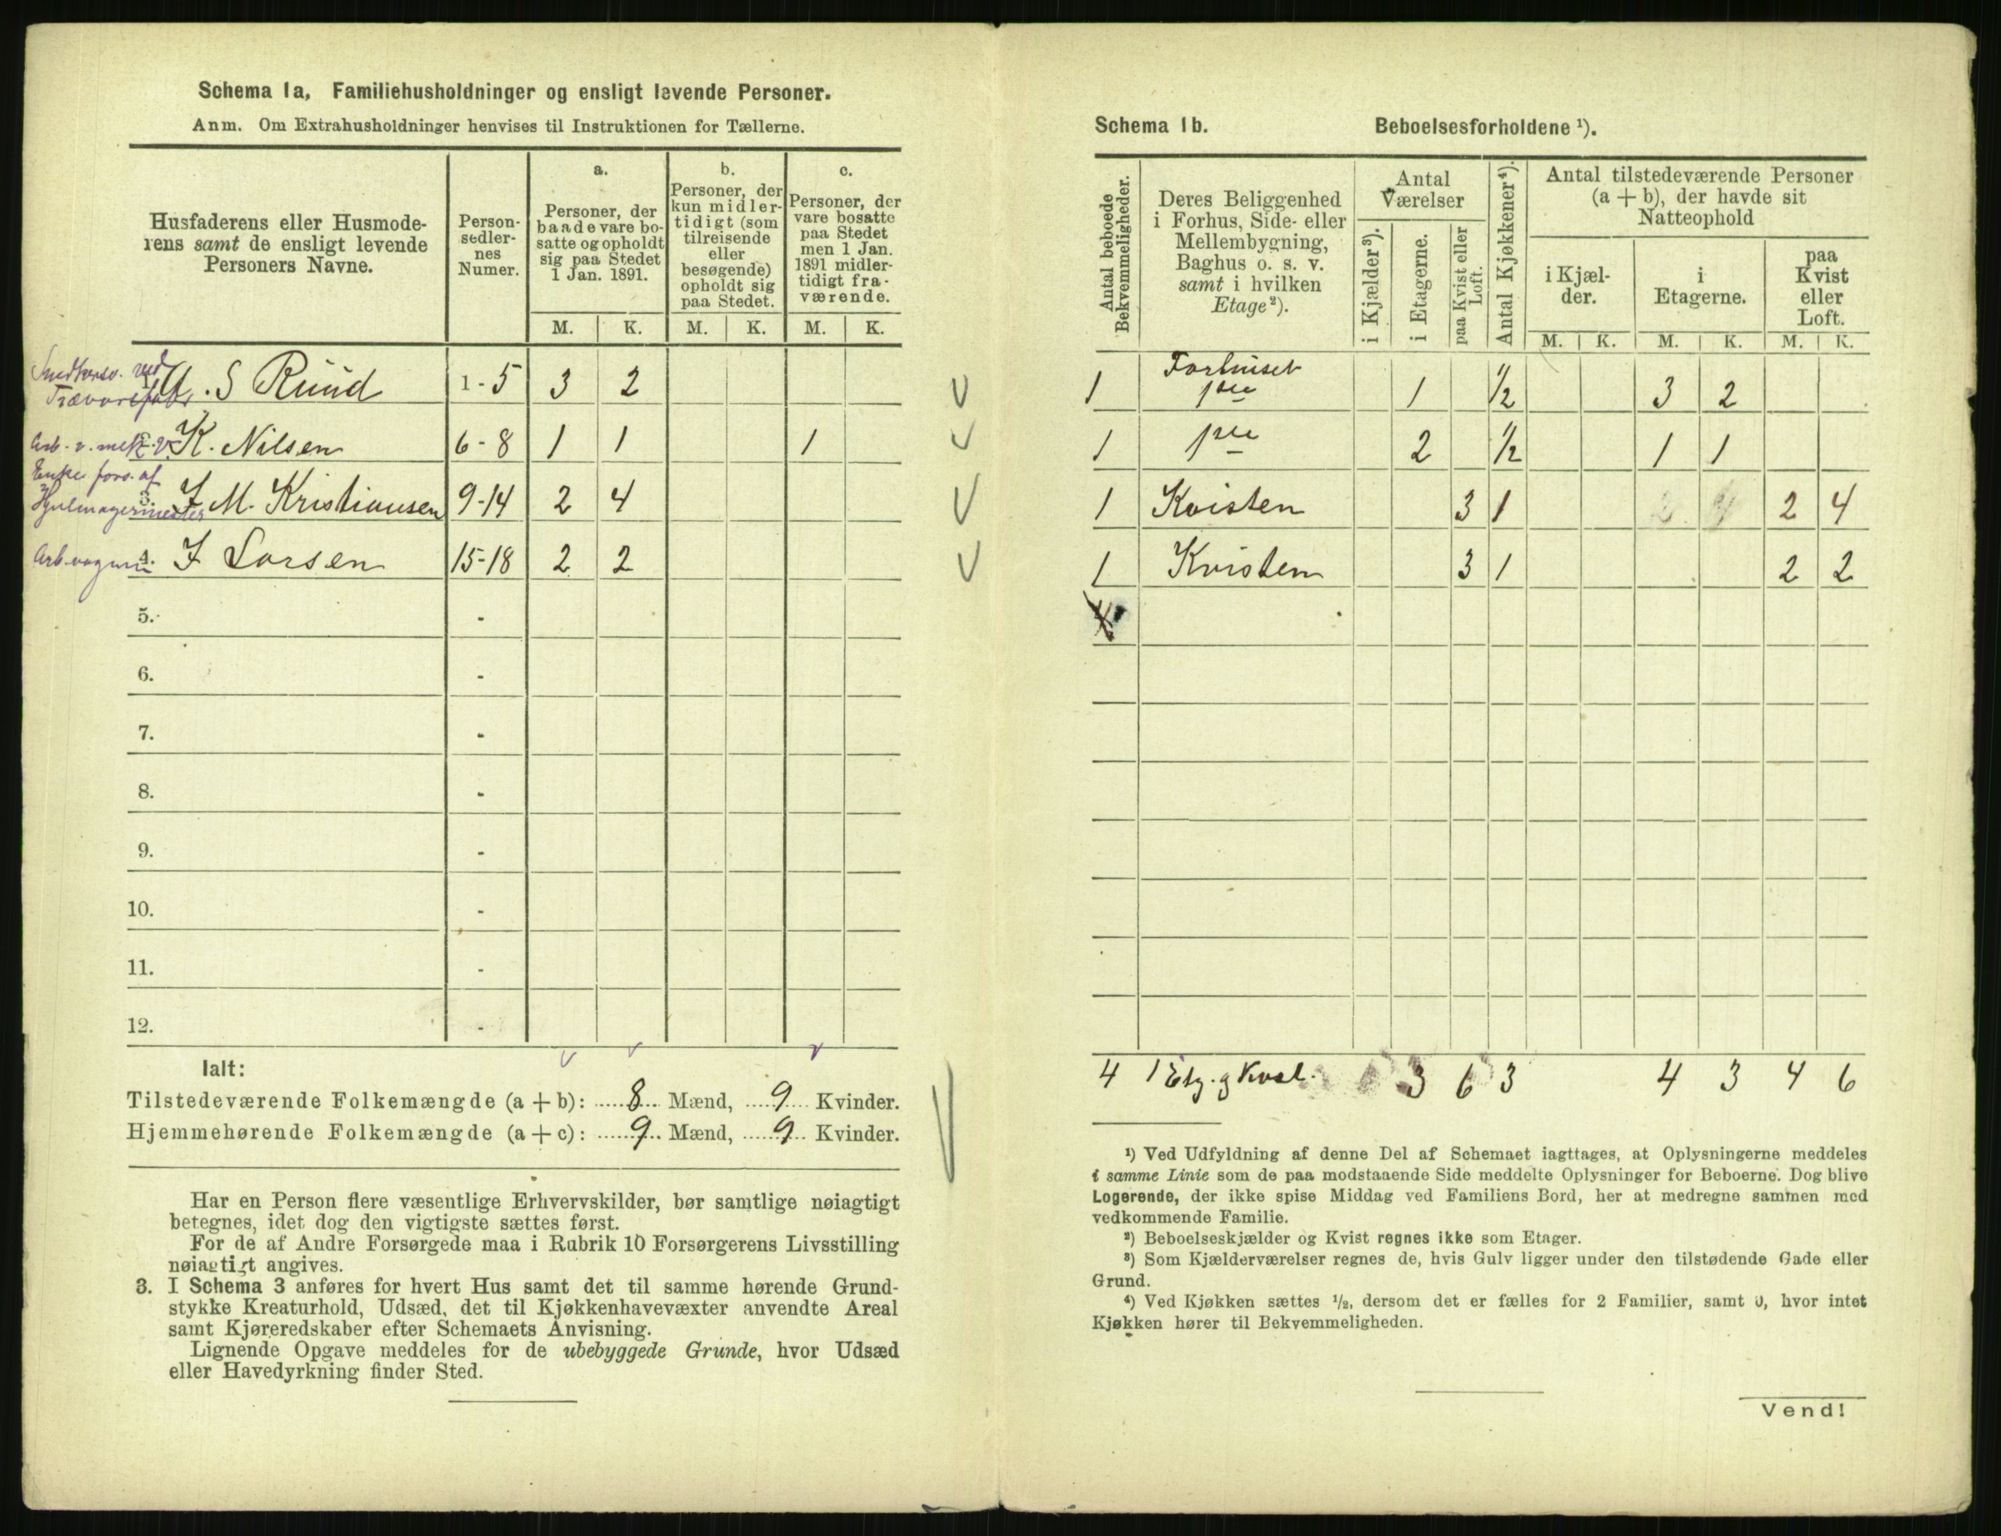 Schema 1a, Familiehusholdninger og ensligt levende Personer.
Anm. Om Extrahusholdninger henvises til Instruktionen for Tællerne.
Husfaderens eller Husmode-
rens samt de ensligt levende
Personers Navne.
Person-
sedler-
nes
Numer.
a.
Personer, der
baade vare bo-
satte og opholdt
sig paa Stedet
1 Jan. 1891.
b.
Personer, der
kun midler-
tidigt (som
tilreisende
eller
besøgende)
opholdt sig
paa Stedet.
c.
Personer, der
vare bosatte
paa Stedet
men 1 Jan.
1891 midler-
tidigt fra-
værende.
M. K. M. K. M. K.
ved
S Ruud 1-5 3 2
K. Nilsen 6-8 1 1 1
Enke fors. af
3. M. Kristiansen 9-14 2 4
4. Larsen 15-18 2 2
5. -
6. -
7. -
8. -
9. -
10. -
11. -
12. -
Ialt:
Tilstedeværende Folkemængde (a + b): 8 Mænd, 9 Kvinder.
Hjemmehørende Folkemængde (a + c): 9 Mænd, 9 Kvinder.
Har en Person flere væsentlige Erhvervskilder, bør samtlige nøiagtigt
betegnes, idet dog den vigtigste sættes først.
For de af Andre Forsørgede maa i Rubrik 10 Forsørgerens Livsstilling
nøiagtigt angives.
3. I Schema 3 anføres for hvert Hus samt det til samme hørende Grund-
stykke Kreaturhold, Udsæd, det til Kjøkkenhavevæxter anvendte Areal
samt Kjøreredskaber efter Schemaets Anvisning.
Lignende Opgave meddeles for de ubebyggede Grunde, hvor Udsæd
eller Havedyrkning finder Sted.
Schema 1b. Beboelsesforholdene ¹).
Antal beboede
Bekvemmeligheder.
Deres Beliggenhed
i Forhus, Side- eller
Mellembygning,
Baghus o. s. v.
samt i hvilken
Etage²).
Antal
Værelser
i Kjælder³).
i Etagerne.
paa Kvist eller
Loft.
Antal Kjøkkener⁴).
Antal tilstedeværende Personer
(a + b), der havde sit
Natteophold
i Kjæl-
der.
i
Etagerne.
paa
Kvist
eller
Loft.
M. K. M. K. M. K.
Forhuset
1 1ste 1 ½ 3 2
1 1ste 2 ½ 1 1
1 Kvisten 3 1 2 4
1 Kvisten 3 1 2 2
4 1 Etg. og Kvist. 3 6 3 4 3 4 6
¹) Ved Udfyldning af denne Del af Schemaet iagttages, at Oplysningerne meddeles
i samme Linie som de paa modstaaende Side meddelte Oplysninger for Beboerne. Dog blive
Logerende, der ikke spise Middag ved Familiens Bord, her at medregne sammen med
vedkommende Familie.
²) Beboelseskjælder og Kvist regnes ikke som Etager.
³) Som Kjælderværelser regnes de, hvis Gulv ligger under den tilstødende Gade eller
Grund.
⁴) Ved Kjøkken sættes ½, dersom det er fælles for 2 Familier, samt 0, hvor intet
Kjøkken hører til Bekvemmeligheden.
Vend!